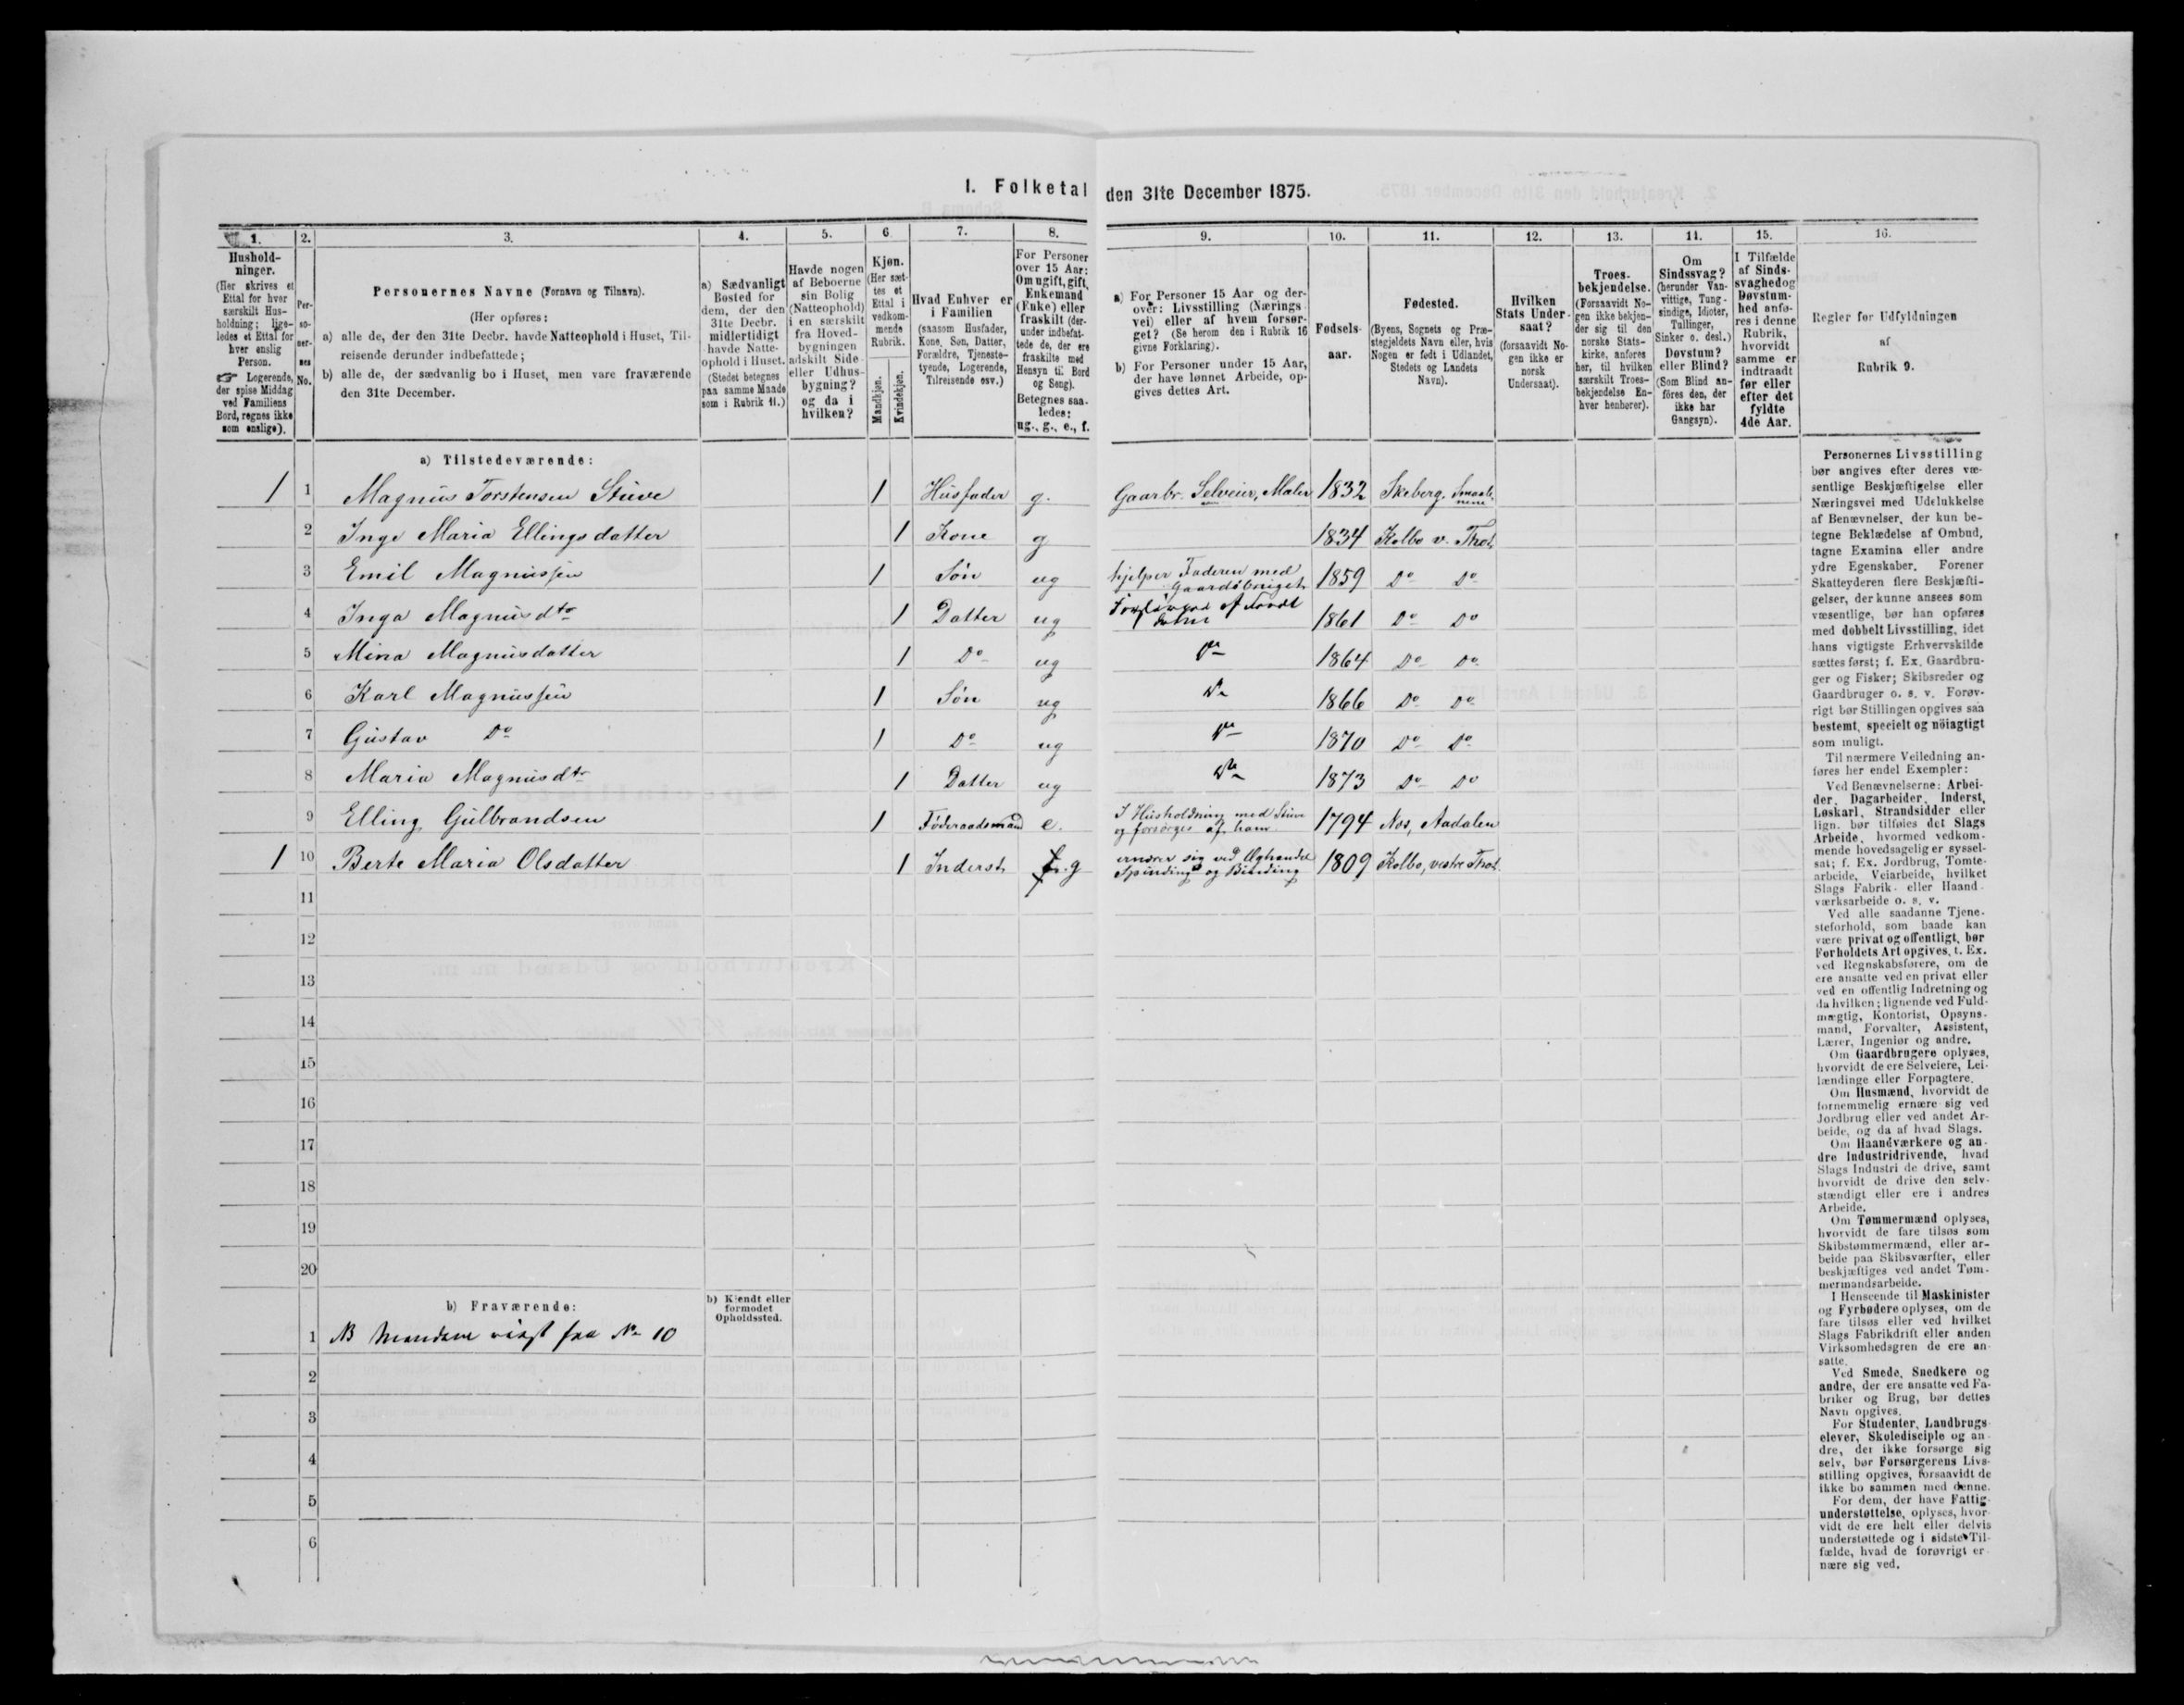 I. Folketal den 31te December 1875.
1. 2. 3. 4. 5. 6. 7. 8. 9. 10. 11. 12. 13. 14. 15. 16.
Hushold-
ninger.
(Her skrives et
Ettal for hver
særskilt Hus-
holdning; lige-
ledes et Ettal for
hver enslig
Person.
☞ Logerende,
der spise Middag
ved Familiens
Bord, regnes ikke
som enslige).
Per-
so-
ner-
nes
No.
Personernes Navne (Fornavn og Tilnavn).
(Her opføres:
a) alle de, der den 31te Decbr. havde Natteophold i Huset, Til-
reisende derunder indbefattede;
b) alle de, der sædvanlig bo i Huset, men vare fraværende
den 31te December.
a) Sædvanligt
Bosted for
dem, der den
31te Decbr.
midlertidigt
havde Natte-
ophold i Huset.
(Stedet betegnes
paa samme Maade
som i Rubrik 11.)
Havde nogen
af Beboerne
sin Bolig
(Natteophold)
i en særskilt
fra Hoved-
bygningen
adskilt Side-
eller Udhus-
bygning?
og da i
hvilken?
Kjøn.
(Her sæt-
tes et
Ettal i
vedkom-
mende
Rubrik.
Mandkjøn.
Kvindekjøn.
Hvad Enhver er
i Familien
(saasom Husfader,
Kone, Søn, Datter,
Forældre, Tjeneste-
tyende, Logerende,
Tilreisende osv.)
For Personer
over 15 Aar:
Om ugift, gift,
Enkemand
(Enke) eller
fraskilt (der-
under indbefat-
tede de, der ere
fraskilte med
Hensyn til Bord
og Seng).
Betegnes saa-
ledes:
ug., g., e., f.
a) For Personer 15 Aar og der-
over: Livsstilling (Nærings-
vei) eller af hvem forsør-
get? (Se herom den i Rubrik 16
givne Forklaring).
b) For Personer under 15 Aar,
der have lønnet Arbeide, op-
gives dettes Art.
Fødsels-
aar.
Fødested.
(Byens, Sognets og Præ-
stegjeldets Navn eller, hvis
Nogen er født i Udlandet,
Stedets og Landets
Navn).
Hvilken
Stats Under-
saat?
(forsaavidt No-
gen ikke er
norsk
Undersaat).
Troes-
bekjendelse.
(Forsaavidt No-
gen ikke bekjen-
der sig til den
norske Stats-
kirke, anføres
her, til hvilken
særskilt Troes-
bekjendelse En-
hver henhører).
Om
Sindssvag?
(herunder Van-
vittige, Tung-
sindige, Idioter,
Tullinger,
Sinker o. desl.)
Døvstum?
eller Blind?
(Som Blind an-
føres den, der
ikke har
Gangsyn).
I Tilfælde
af Sinds-
svaghed og
Døvstum-
hed anfø-
res i denne
Rubrik,
hvorvidt
samme er
indtraadt
før eller
efter det
fyldte
4de Aar.
Regler for Udfyldningen
af
Rubrik 9.
a) Tilstedeværende:
1 1 Magnus Torstensen Stuve 1 Husfader g. Gaarbr. Selveier, Maler 1832 Skeberg, Smaale-
nene
2 Inge Maria Ellingsdatter 1 Kone g 1834 Kolbo v. Thot.
3 Emil Magnussen 1 Søn ug hjelper Faderen med
Gaardsbruget 1859 Do Do
4 Inga Magnusdtr 1 Datter ug 1861 Do Do
5 Mina Magnusdatter 1 Do ug Do 1864 Do Do
6 Karl Magnussen 1 Søn ug Do 1866 Do Do
7 Gustav Do 1 Do ug Do 1870 Do Do
8 Maria Magnusdtr 1 Datter ug Do 1873 Do Do
9 Elling Gulbrandsen 1 Føderaadsmand e. I Husholdning med Stuve
og forsørges af ham 1794 Nos, Aadalen
1 10 Berte Maria Olsdatter 1 Inderst g ernærer sig ved Ughandel
Spinding og Binding 1809 Kolbo, vestre Thot.
11
12
13
14
15
16
17
18
19
20
b) Fraværende:
b) Kjendt eller
formodet
Opholdssted.
1 NB Manden reist fra No 10
2
3
4
5
6
Personernes Livsstilling
bør angives efter deres væ-
sentlige Beskjæftigelse eller
Næringsvei med Udelukkelse
af Benævnelser, der kun be-
tegne Beklædelse af Ombud,
tagne Examina eller andre
ydre Egenskaber. Forener
Skatteyderen flere Beskjæfti-
gelser, der kunne ansees som
væsentlige, bør han opføres
med dobbelt Livsstilling, idet
hans vigtigste Erhvervskilde
sættes først; f. Ex. Gaardbru-
ger og Fisker; Skibsreder og
Gaardbruger o. s. v. Forøv-
rigt bør Stillingen opgives saa
bestemt, specielt og nöiagtigt
som muligt.
Til nærmere Veiledning an-
føres her endel Exempler:
Ved Benævnelserne: Arbei-
der, Dagarbeider, Inderst,
Løskarl, Strandsidder eller
lign. bør tilføies det Slags
Arbeide, hvormed vedkom-
mende hovedsagelig er syssel-
sat; f. Ex. Jordbrug, Tomte-
arbeide, Veiarbeide, hvilket
Slags Fabrik- eller Haand-
værksarbeide o. s. v.
Ved alle saadanne Tjene-
steforhold, som baade kan
være privat og offentligt, bør
Forholdets Art opgives, t. Ex.
ved Regnskabsførere, om de
ere ansatte ved en privat eller
ved en offentlig Indretning og
da hvilken; lignende ved Fuld-
mægtig, Kontorist, Opsyns-
mand, Forvalter, Assistent,
Lærer, Ingeniør og andre.
Om Gaardbrugere oplyses,
hvorvidt de ere Selveiere, Lei-
lændinge eller Forpagtere.
Om Husmænd, hvorvidt de
fornemmelig ernære sig ved
Jordbrug eller ved andet Ar-
beide, og da af hvad Slags.
Om Haandværkere og an-
dre Industridrivende, hvad
Slags Industri de drive, samt
hvorvidt de drive den selv-
stændigt eller ere i andres
Arbeide.
Om Tømmermænd oplyses,
hvorvidt de fare tilsøs som
Skibstømmermænd, eller ar-
beide paa Skibsværfter, eller
beskjæftiges ved andet Tøm-
mermandsarbeide.
I Henseende til Maskinister
og Fyrbødere oplyses, om de
fare tilsøs eller ved hvilket
Slags Fabrikdrift eller anden
Virksomhedsgren de ere an-
satte.
Ved Smede, Snedkere og
andre, der ere ansatte ved Fa-
briker og Brug, bør dettes
Navn opgives.
For Studenter, Landbrugs-
elever, Skoledisciple og an-
dre, der ikke forsørge sig
selv, bør Forsørgerens Livs-
stilling opgives, forsaavidt de
ikke bo sammen med denne.
For dem, der have Fattig-
understøttelse, oplyses, hvor-
vidt de ere helt eller delvis
understøttede og i sidste Til-
fælde, hvad de forøvrigt er-
nære sig ved.